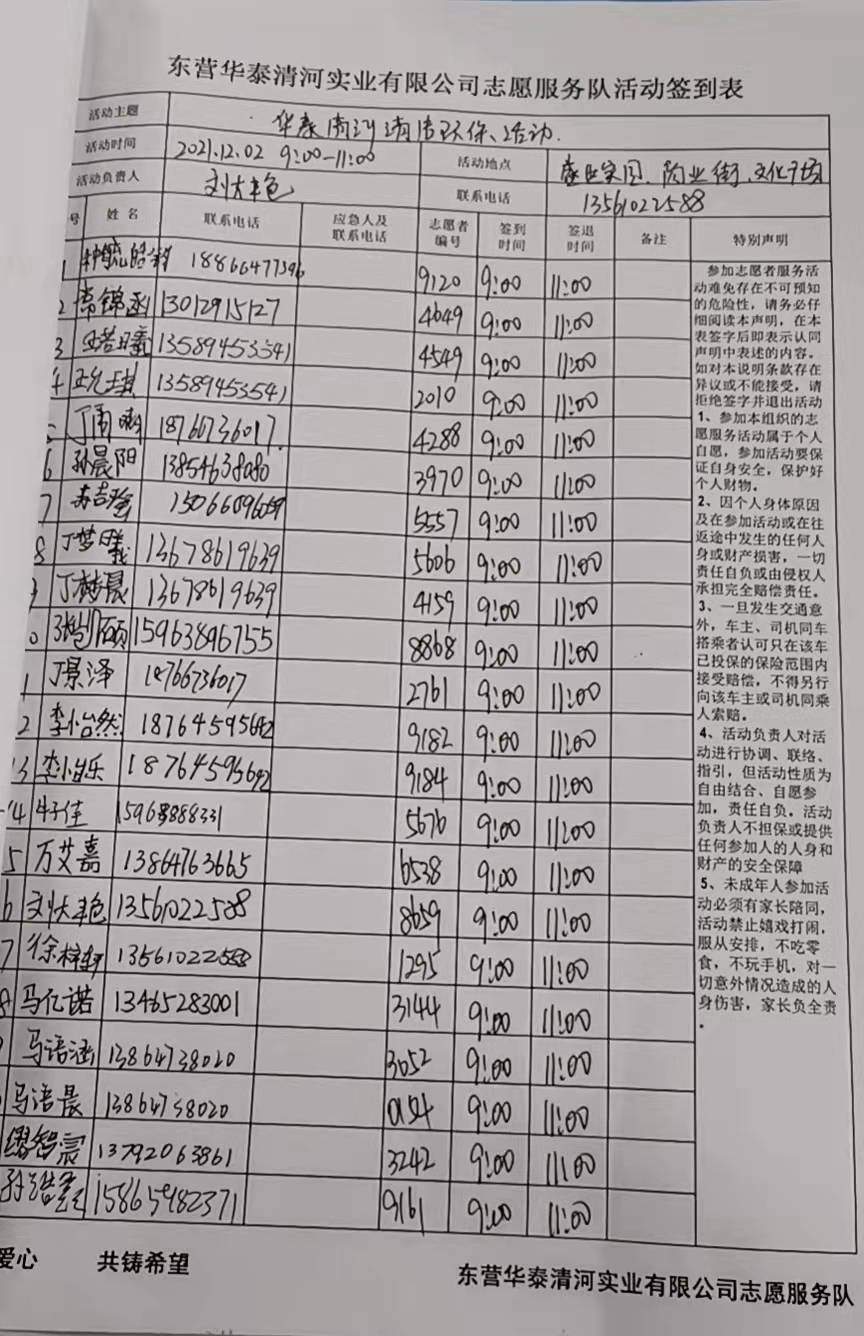 东营华泰清河实业有限公司志愿服务队活动签到表
活动主题 华泰清河清洁环保活动.
活动时间 2021.12.02 9:00-11:00 活动地点 文化广场
活动负责人 联系电话 13561022588
号 姓名 联系电话 应急人及联系电话 志愿者编号 签到时间 签退时间 备注 特别声明
1 18866477396 9120 9:00 11:00
2 常锦函 13012915127 4649 9:00 11:00
3 13589453541 4549 9:00 11:00
4 13589453541 2010 9:00 11:00
5 18766736017 4288 9:00 11:00
6 孙晨阳 13854638080 3970 9:00 11:00
7 15066096059 5557 9:00 11:00
8 丁梦 13678619639 5606 9:00 11:00
丁梦晨 13678619639 4159 9:00 11:00
0 15963896755 8868 9:00 11:00
1 丁景泽 18766736017 2761 9:00 11:00
2 李怡然 18764595692 9182 9:00 11:00
3 李怡乐 18764595692 9184 9:00 11:00
4 牛子佳 15963888331 5676 9:00 11:00
5 万艾嘉 13864763665 6538 9:00 11:00
6 13561022588 8659 9:00 11:00
7 徐梓轩 13561022588 1295 9:00 11:00
8 马亿诺 13465283001 3144 9:00 11:00
马语涵 13864738020 3652 9:00 11:00
马语晨 13864738020 0154 9:00 11:00
缪智宸 13792063861 3242 9:00 11:00
15865982371 9161 9:00 11:00
参加志愿者服务活
动难免存在不可预知
的危险性，请务必仔
细阅读本声明，在本
表签字后即表示认同
声明中表述的内容。
如对本说明条款存在
异议或不能接受，请
拒绝签字并退出活动
1、参加本组织的志
愿服务活动属于个人
自愿，参加活动要保
证自身安全，保护好
个人财物。
2、因个人身体原因
及在参加活动或在往
返途中发生的任何人
身或财产损害，一切
责任自负或由侵权人
承担完全赔偿责任。
3、一旦发生交通意
外，车主、司机同车
搭乘者认可只在该车
已投保的保险范围内
接受赔偿，不得另行
向该车主或司机同乘
人索赔。
4、活动负责人对活
动进行协调、联络、
指引，但活动性质为
自由结合、自愿参
加，责任自负。活动
负责人不担保或提供
任何参加人的人身和
财产的安全保障
5、未成年人参加活
动必须有家长陪同，
活动禁止嬉戏打闹，
服从安排，不吃零
食，不玩手机，对一
切意外情况造成的人
身伤害，家长负全责
。
爱心 共铸希望
东营华泰清河实业有限公司志愿服务队